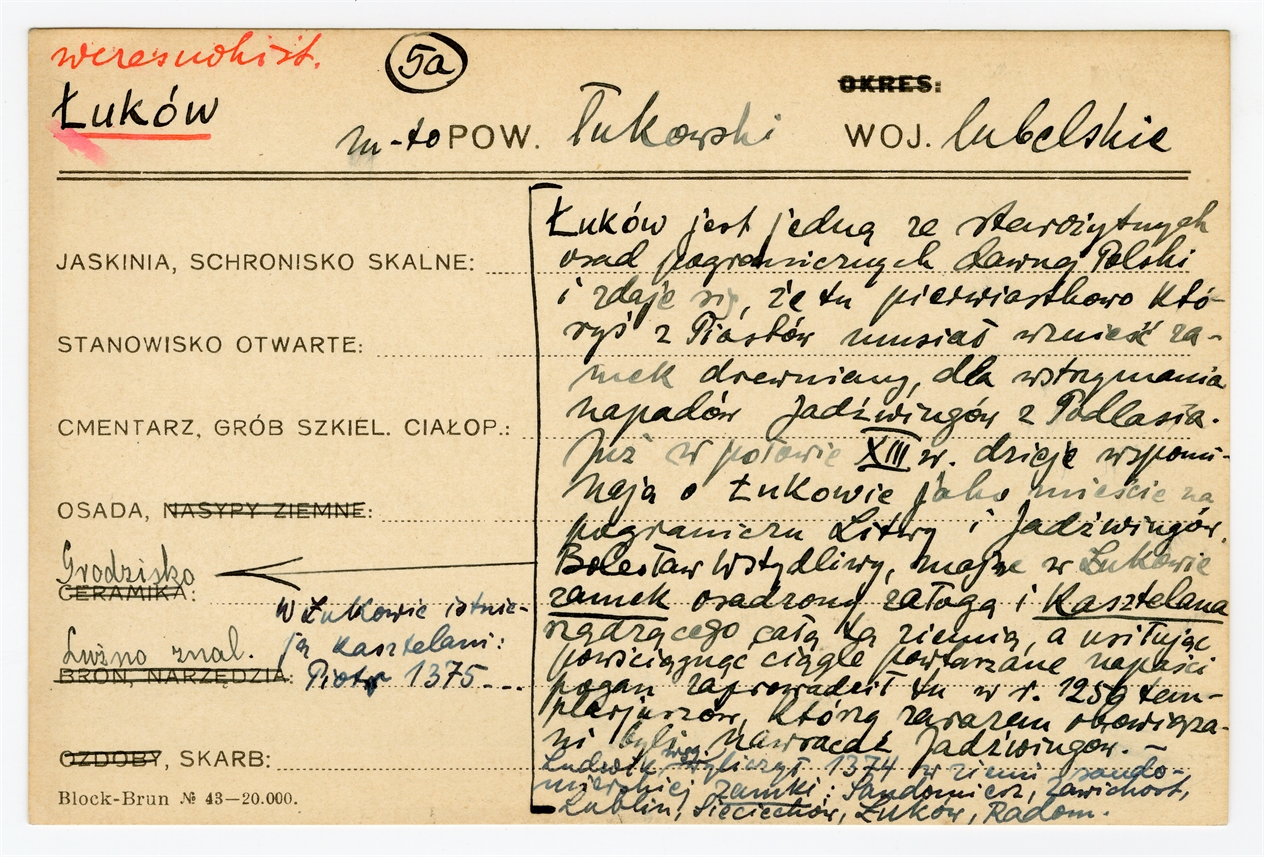 wczesnohist.
5a
Łuków
OKRES:
m-to POW. łukowski WOJ. lubelskie
JASKINIA, SCHRONISKO SKALNE:
STANOWISKO OTWARTE:
CMENTARZ, GRÓB SZKIEL. CIAŁOP.:
OSADA, NASYPY ZIEMNE:
Grodzisko
CERAMIKA:
Luźno znal.
BROŃ, NARZĘDZIA:
W Łukowie istnie-
ją kasztelani:
Piotr 1375...
OZDOBY, SKARB:
Block-Brun № 43—20.000.
Łuków jest jedną ze starożytnych
osad pogranicznych dawnej Polski
i zdaje się, że tu pierwiastkowo któ-
ryś z Piastów musiał wznieść za-
mek drewniany, dla wstrzymania
napadów Jadźwingów z Podlasia.
Już w połowie XIII w. dzieje wspomi-
nają o Łukowie jako mieście na
pograniczu Litwy i Jadźwingów.
Bolesław Wstydliwy, mając w Łukowie
zamek osadzony załogą i Kasztelana
rządzącego całą tą ziemią, a usiłując
powściągnąć ciągle powtarzane napaści
pogan zaprowadził tu w r. 1250 tem-
plarjuszów, którzy zarazem obowiąza-
ni byli nawracać Jadźwingów. –
Ludwik węg. wyliczył 1374 w ziemi sando-
mierskiej zamki: Sandomierz, Zawichost,
Lublin, Sieciechów, Łuków, Radom.